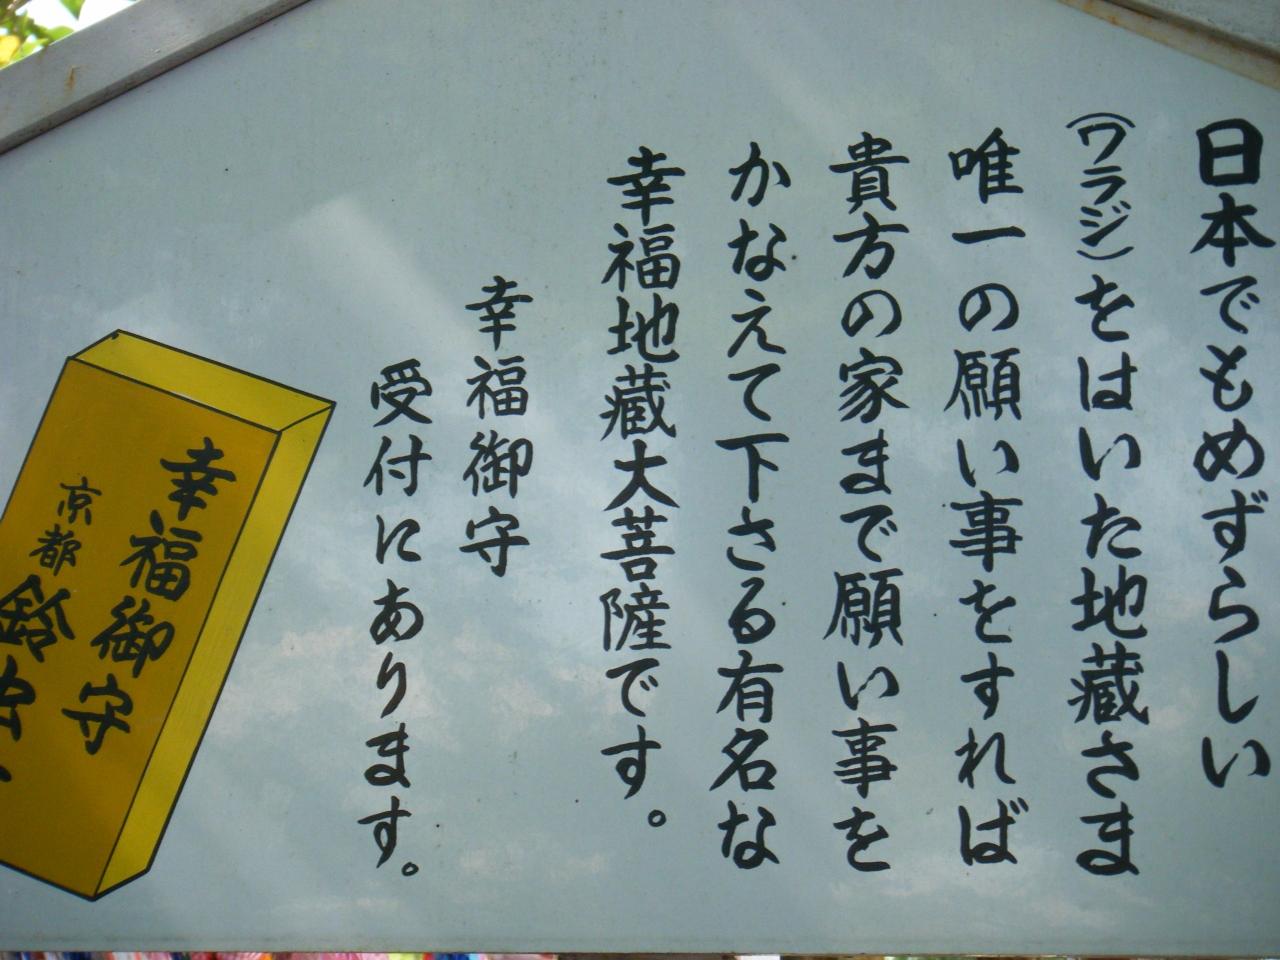 日本でもめずらしい
(ワラジ)をはいた地蔵さま
唯一の願い事をすれば
貴方の家まで願い事を
かなえて下さる有名な
幸福地蔵大菩薩です。
幸福御守
受付にあります。
幸福御守
京都鈴虫